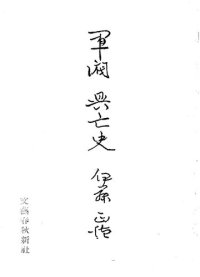 軍閥興亡史 伊藤正徳
文藝春秋新社